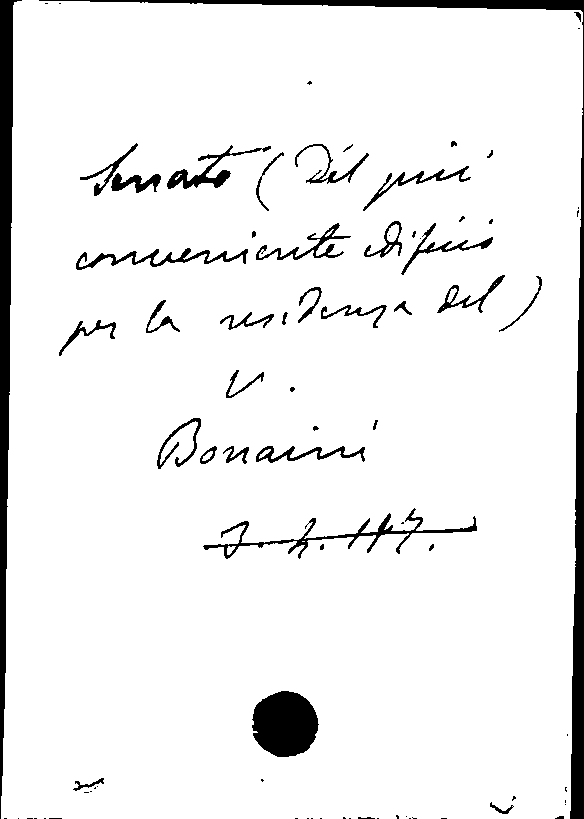 Senato (Del più
conveniente edificio
per la residenza del)
V.
Bonaini
3. 2. 117.